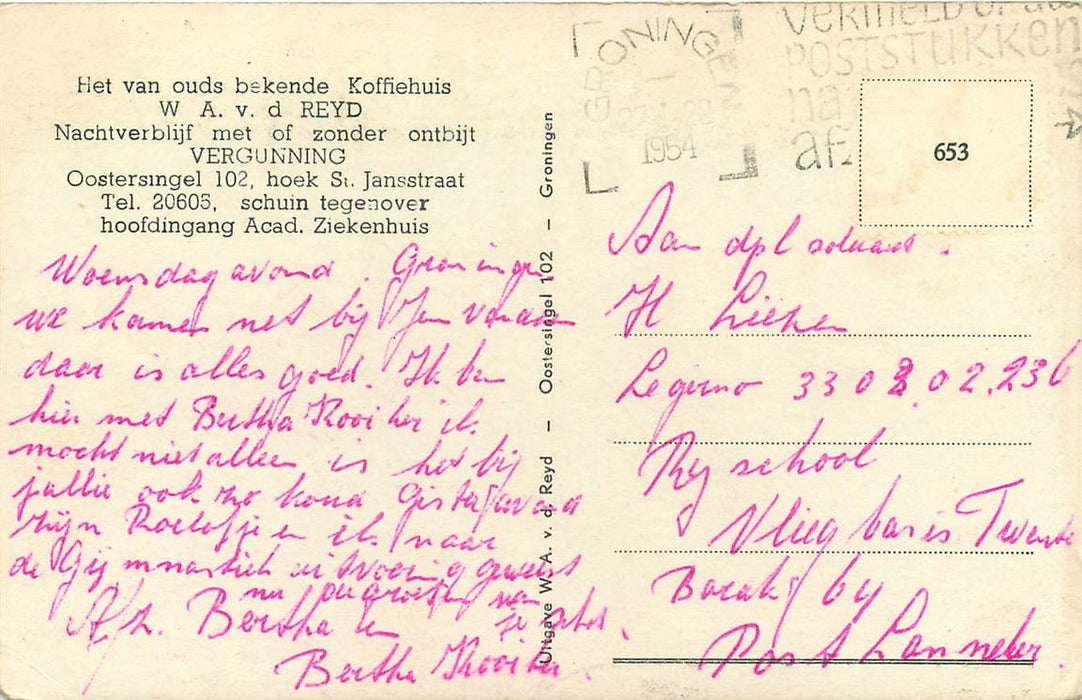 Het van ouds bekende Koffiehuis
W A. v. d REYD
Nachtverblijf met of zonder ontbijt
VERGUNNING
Oostersingel 102, hoek St. Jansstraat
Tel. 20605, schuin tegenover
hoofdingang Acad. Ziekenhuis
Woensdagavond. Groningen
we kamen net bij Jan vandaan
daar is alles goed. Ik ben
hier met Bertha Kooiker ik
mocht niet alleen is het bij
jullie ook zo koud Gisteravond
zijn Roelofje en ik naar
de Gymnastiek uitvoering geweest
nu de groeten van
Afz. Bertha en
Bertha Kooiker.
Uitgave W. A. v. d. Reyd — Oostersingel 102 — Groningen
GRONINGEN
1954
POSTSTUKKEN
653
Aan dpl soldaat.
H
Legerno 33 02.236
Rij school
Vliegbasis Twente
Barak by
Post Lonneker.